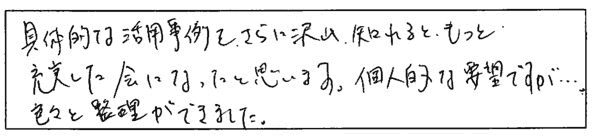 具体的な活用事例を、さらに沢山、知れると、もっと
充実した会になったと思います。個人的な要望ですが…
色々と整理ができました。